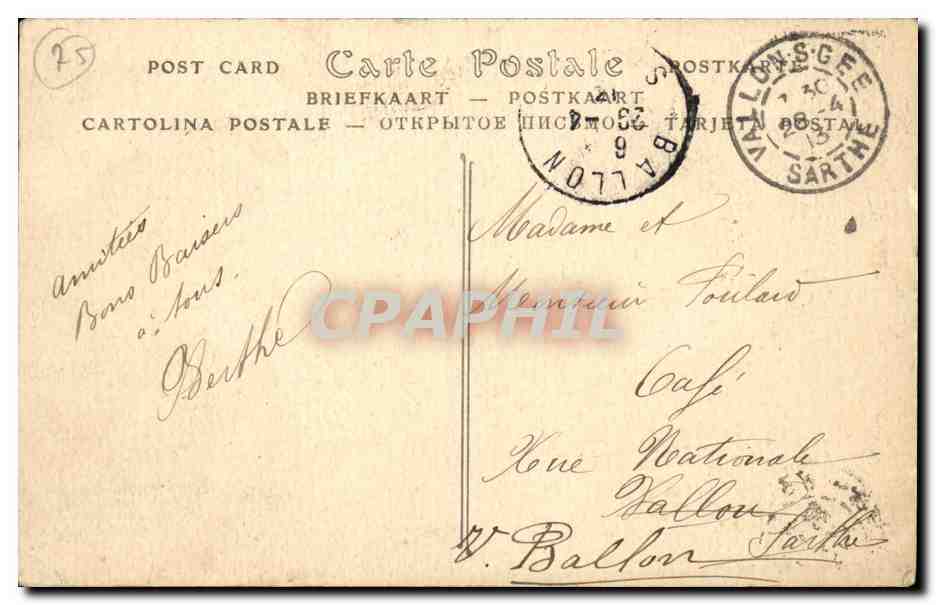 75
POST CARD Carte Postale POSTKARTE
BRIEFKAART — POSTKAART
CARTOLINA POSTALE — ОТКРЫТОЕ ПИСЬМО — TARJETA POSTAL
VALLON-S-GEE
30
28 -4
13
SARTHE
S BALLON
6
29 -4
13
amitiés
Bons Baisers
à tous.
Berthe
Madame et
Monsieur Foulard
Café
Rue Nationale
Vallon
V. Ballon Sarthe
CPAPHIL